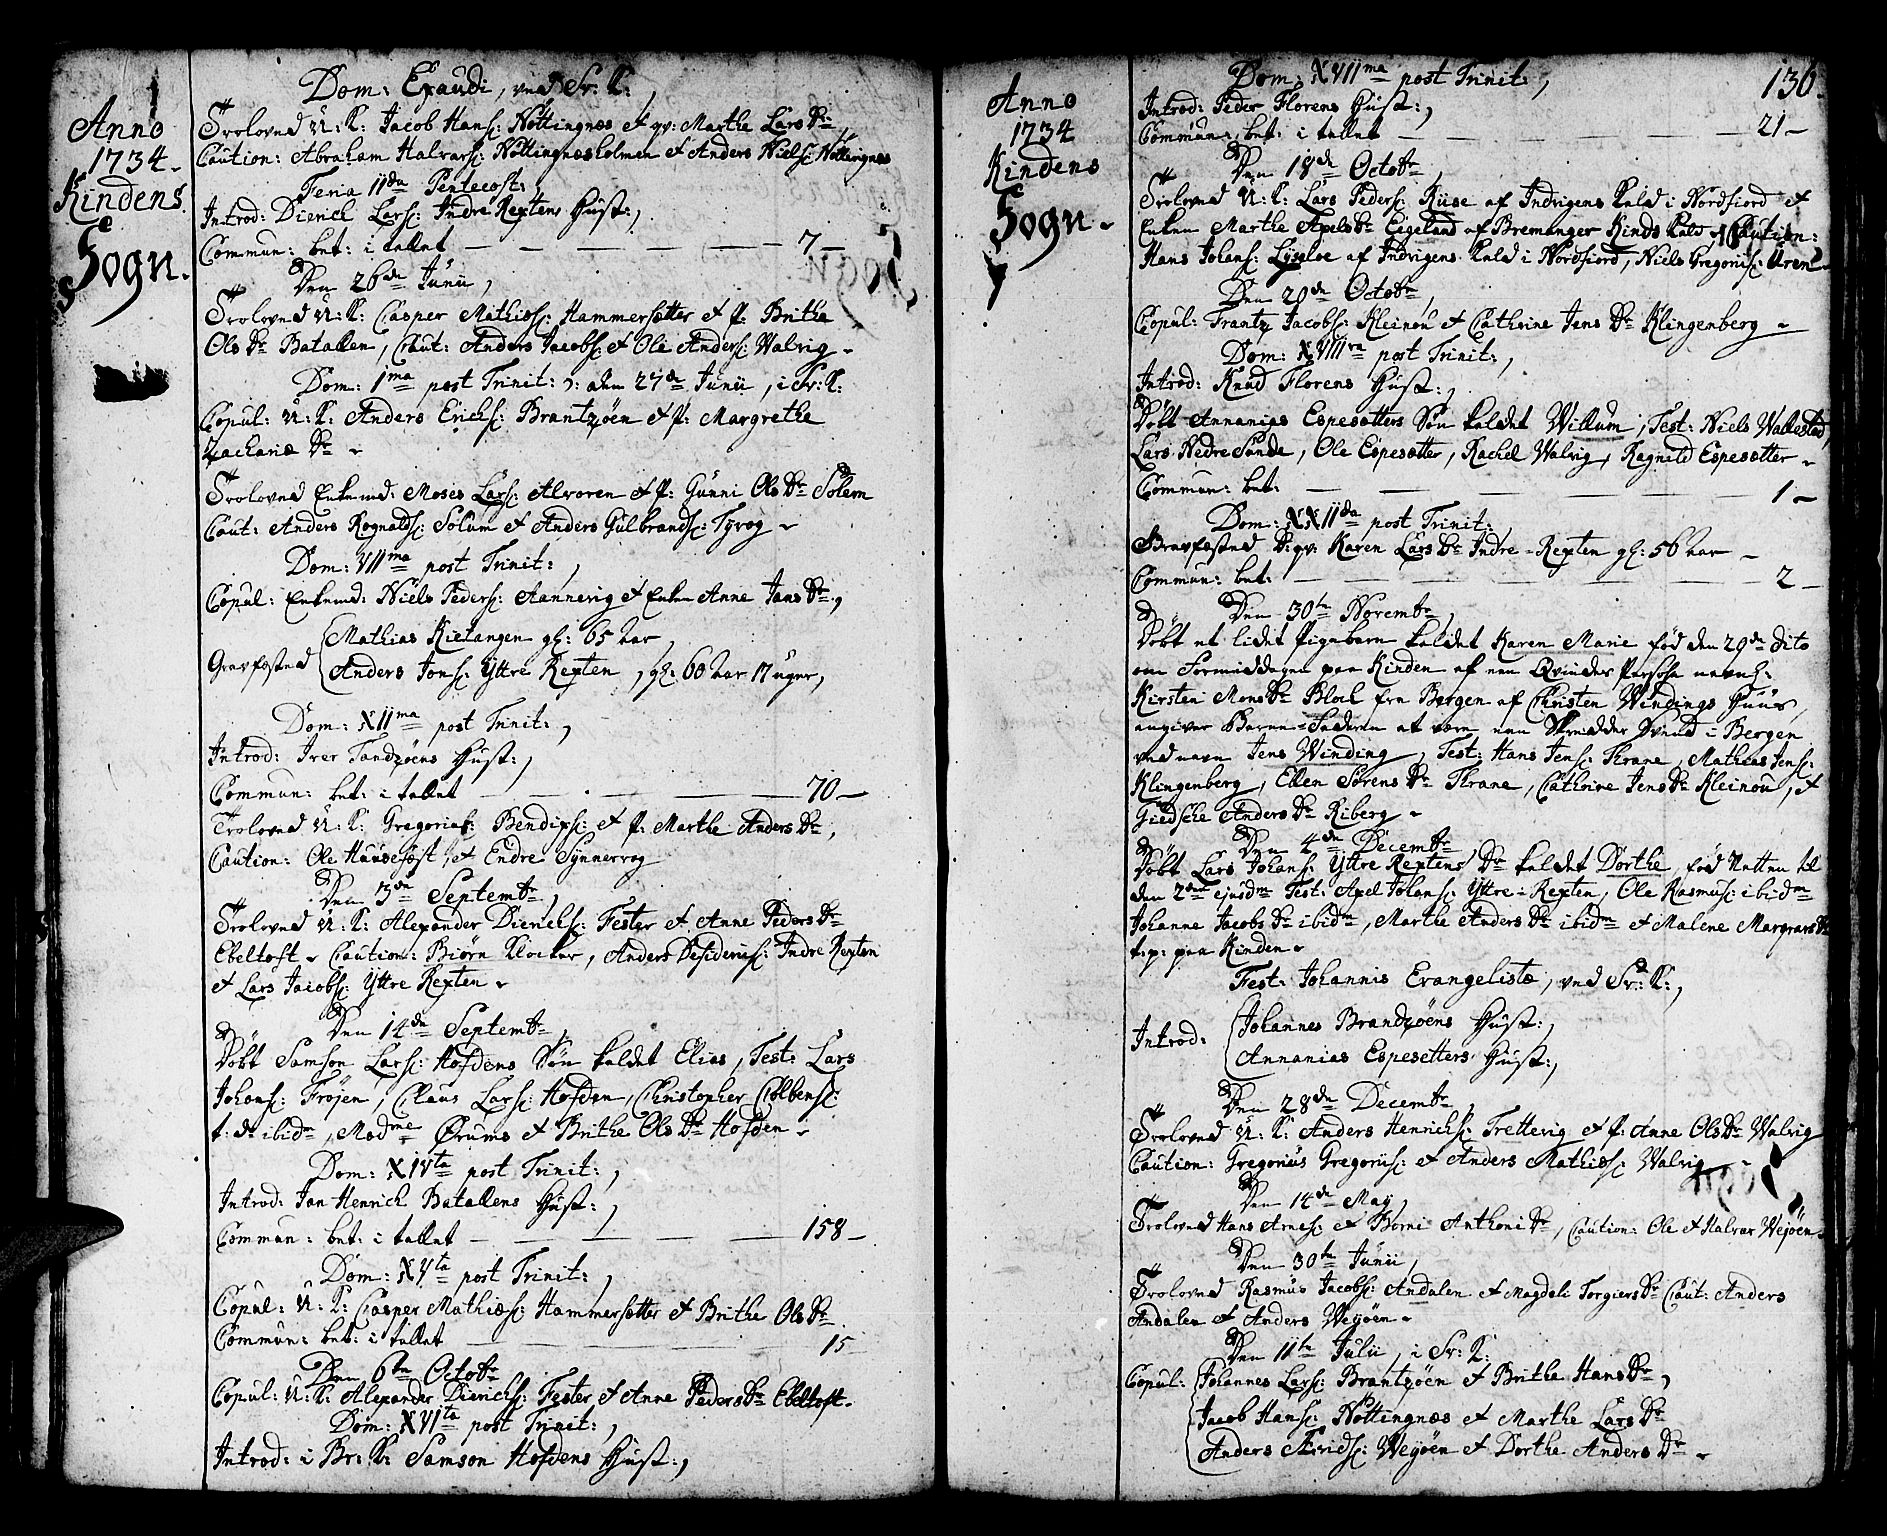 Anno
1734.
Kindens
Sogn.
Dom: Exaudi, ved Sr: K:,
Troloved U: K: Jacob Hans: Nøttingnæs et qv: Marthe Lars Dr:
Caution: Abraham Halvars: Nøttingnæsholmen et Anders Niels: Nøttingnæs
Feria IIda Pentecost:,
Introd: Dierich Lars: Indre Rextens Hust:,
Commun: bet: i tallet — 7 —
Den 26de Junii,
Troloved U: K: Casper Mathies: Hammersetter et P: Brithe
Ols Dr Batallen, Caut: Anders Jacobs: et Ole Anders: Walvig.
Dom: 1ma post Trinit: ɔ: den 27de Junii, i Sr: K:
Copul: U: K: Anders Erichs: Brantzøen et P: Margrethe
Zachariæ Dr
Troloved Enkemd: Moses Lars: Alvoren et P: Gunni Ols Dr Solem
Caut: Anders Rognalds: Solum et Anders Gulbrands: Tyvog
Dom: VIIma post Trinit:,
Copul: Enkemd: Niels Peders: Aannevig et Enken Anne Jans Dr,
Gravfæsted
Mathias Kietangen gl: 65 Aar,
Anders Jons: Yttre Rexten, gl: 60 Aar 17 uger,
Dom: XIIma post Trinit:,
Introd: Iver Tandzøens Hust:,
Commun: bet: i tallet — 70 —
Troloved U: K: Gregorius Bendixs: et P: Marthe Anders Dr,
Caution: Ole Huusefest, et Endre Synnervog
Den 3de Septembr,
Troloved U: K: Alexander Dierichs: Fester et Anne Peders Dr
Ebeltoft. Caution: Biørn Klocker, Anders Desideriis: Indre Rexten
et Lars Jacobs: Yttre Rexten.
Den 14de Septembr,
Døbt Samson Lars: Hofdens Søn kaldet Elias, Test: Lars
Johans: Frøjen, Claus Lars: Hofden, Christopher Colbens:
t: D: ibidm, Madme Ørums et Brithe Ols Dr Hofden.
Dom: XIVta post Trinit:,
Introd: Jan Henrich Batallens Hust:,
Commun: bet: i tallet — 158 —
Dom: XVta post Trinit:,
Copul: U: K: Casper Mathies: Hammersetter et Brithe Ols Dr
Commun: bet: i tallet — 15
Den 6te Octobr
Copul: U: K: Alexander Dierichs: Fester et Anne Peders Dr Ebeltoft.
Dom: XVIta post Trinit:,
Introd: i Br: K: Samson Hofdens Hust:,
Anno
1734
Kindens
Sogn.
136.
Dom: XVIIma post Trinit:,
Introd: Peder Florens Hust:,
Commun: bet: i tallet — 21 —
Den 18de Octobr,
Troloved U: K: Lars Peders: Riise af Indvigens kald i Nordfiord et
Enken Marthe Axels Dr Eigeland af Bremanger Kinds kald. Caution:
Hans Johans: Lyseloe af Indvigens kald i Nordfiord, Niels Gregoriis: Uren
Den 20de Octobr,
Copul: Frantz Jacobs: Kleinou et Cathrine Jens Dr Klingenberg
Dom: XVIIIva post Trinit:,
Introd: Knud Florens Hust:,
Døbt Annanias Espesetters Søn kaldet Willum, Test: Niels Wallestad,
Lars Nedre Sunde, Ole Espesetter, Rachel Walvig, Ragnild Espesetter.
Commun: bet: — 1 —
Dom: XXIIda post Trinit:,
Gravfæsted P: qv: Karen Lars Dr Indre-Rexten gl: 56 Aar
Commun: bet: — 2 —
Den 30te Novembr,
Døbt et lidet Pigebarn kaldet Karen Marie fød den 29de dito
om Formiddagen paa Kinden af een Qvindes Persohn navnl:
Kirsten Mons Dr Bloch fra Bergen af Christen Windings Huus,
angiver Barne-Faderen at være een Skredder Svend i Bergen
ved navn Jens Winding, Test: Hans Jens: Thrane, Mathias Jens:
Klingenberg, Ellen Sørens Dr Thrane, Cathrine Jens Dr Kleinou, et
Giedsche Anders Dr Riberg.
Den 4de Decembr,
Døbt Lars Johans: Yttre Rextens Dr kaldet Dorthe, fød Natten til
den 2den ejusdm Test: Axel Johans: Yttre-Rexten, Ole Rasmus: ibidm
Johanne Jacobs Dr ibidm, Marthe Anders Dr ibidm et Malene Margrars Dr
t: p: paa Kinden.
Fest: Johannis Evangelistæ, ved Sr: K:,
Introd:
Johannes Brandzøens Hust:,
Annanias Espesetters Hust:,
Den 28de Decembr,
Troloved U: K: Anders Henrichs: Trettevig et P: Anne Ols Dr Walvig
Caution: Gregorius Gregoriis: et Anders Mathies: Walvig
Den 14de May,
Troloved Hans Arnes: et Borni Anthoni Dr, Caution: Ole et Halvar Weyøen.
Den 30te Junii,
Troloved Rasmus Jacobs: Andalen et Magdeli Torgiers Dr Caut: Anders
Andalen et Anders Weyøen.
Den 11te Julii, i Sr: K:
Copul: Johannes Lars: Brantzøen et Brithe Hans Dr,
Jacob Hans: Nøttingnæs et Marthe Lars Dr
Anders Weyøen et Dorthe Anders Dr